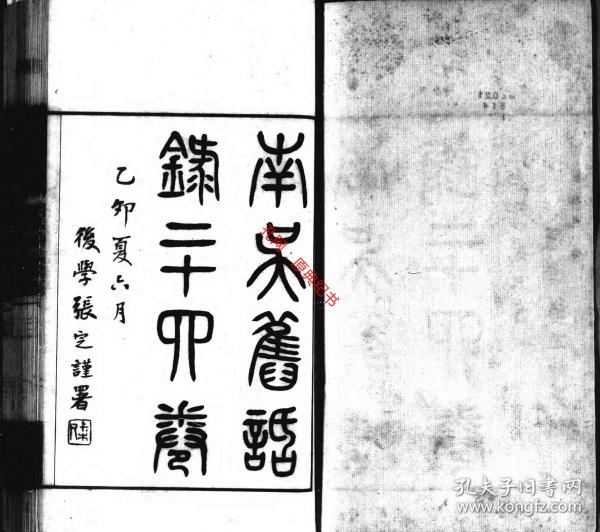 南吳舊話
錄二十四卷
乙卯夏六月
後學張定謹署
原典纪书
孔夫子旧书网
www.kongfz.com